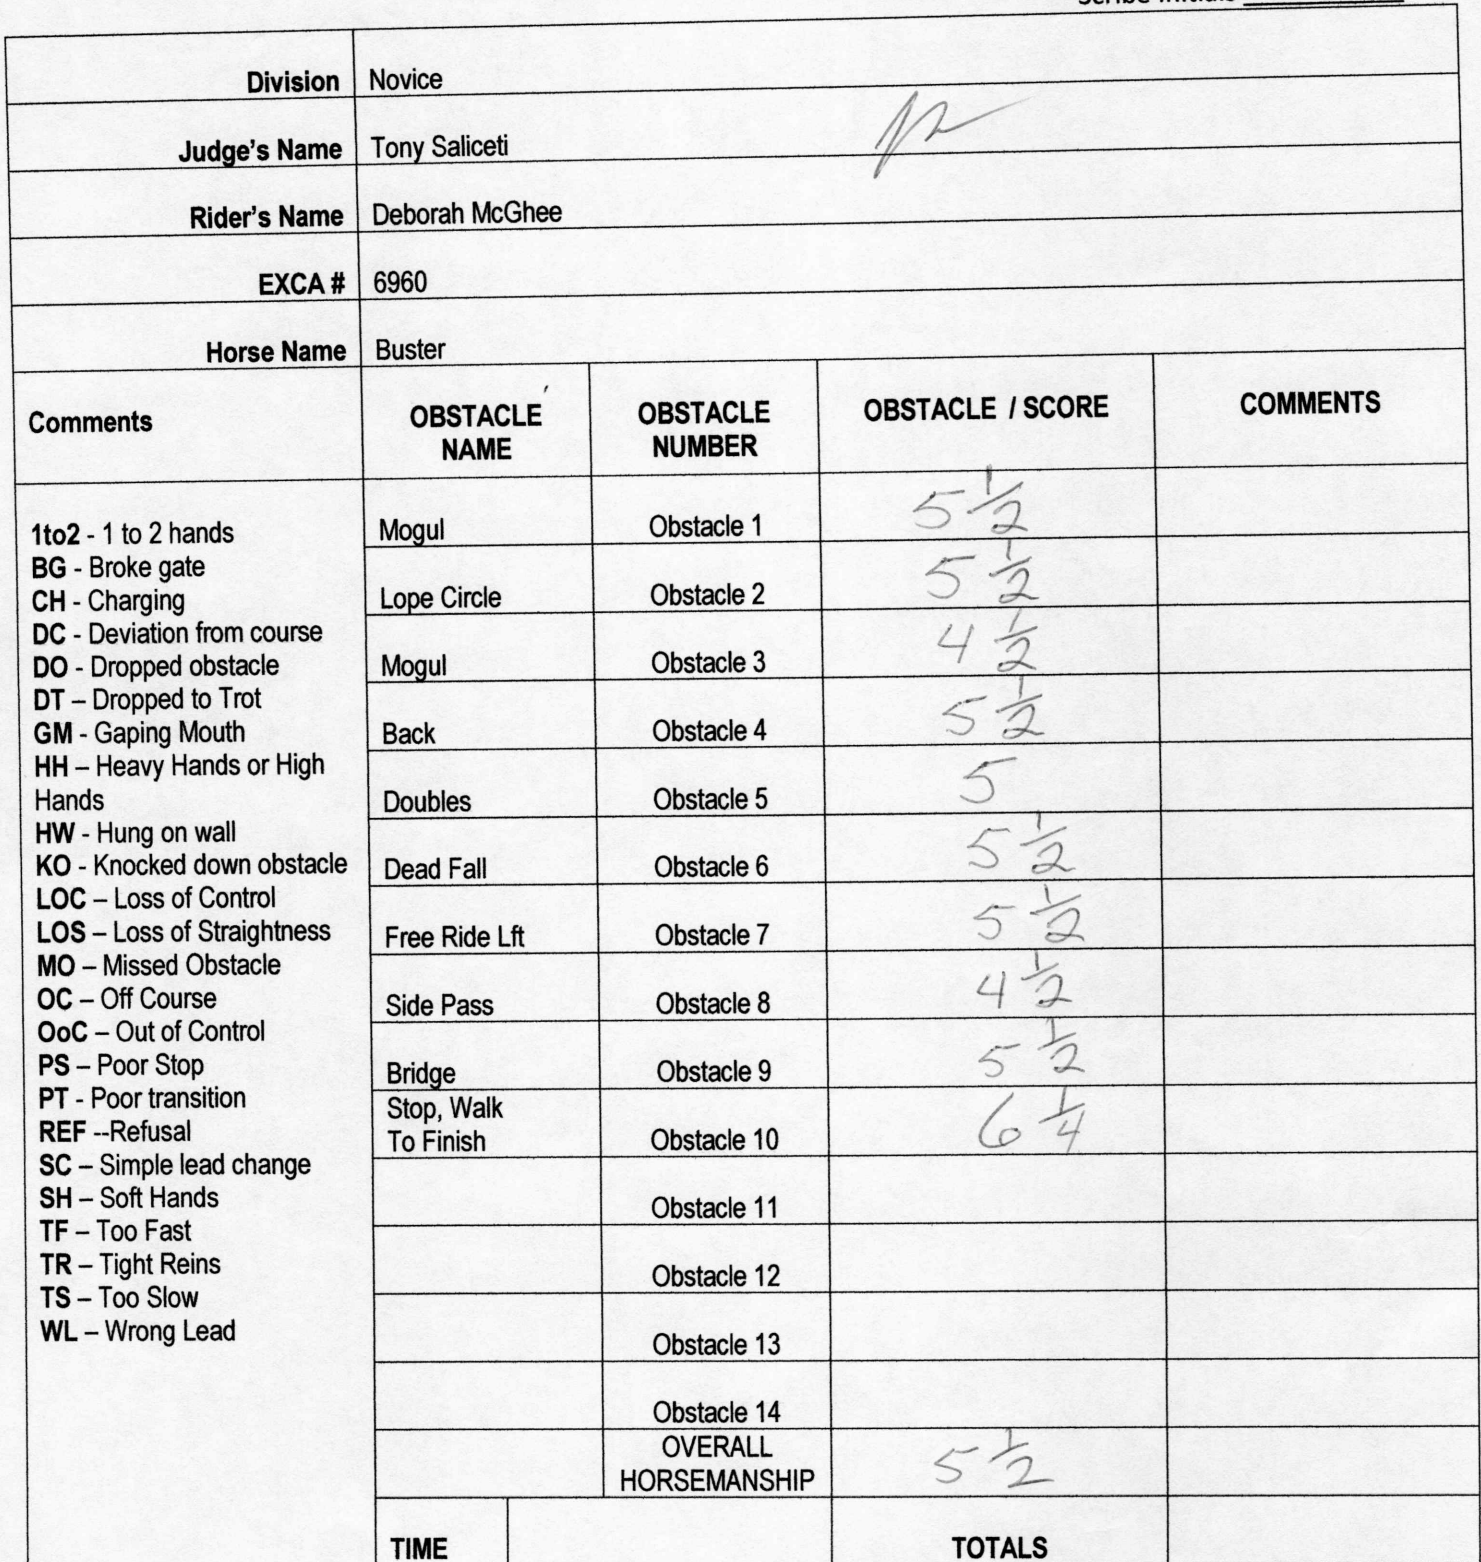 Scribe Initials
Division Novice
Judge's Name Tony Saliceti
Rider's Name Deborah McGhee
EXCA # 6960
Horse Name Buster
Comments
OBSTACLE NAME
OBSTACLE NUMBER
OBSTACLE / SCORE
COMMENTS
1to2 - 1 to 2 hands
BG - Broke gate
CH - Charging
DC - Deviation from course
DO - Dropped obstacle
DT – Dropped to Trot
GM - Gaping Mouth
HH – Heavy Hands or High
Hands
HW - Hung on wall
KO - Knocked down obstacle
LOC – Loss of Control
LOS – Loss of Straightness
MO – Missed Obstacle
OC – Off Course
OoC – Out of Control
PS – Poor Stop
PT - Poor transition
REF --Refusal
SC – Simple lead change
SH – Soft Hands
TF – Too Fast
TR – Tight Reins
TS – Too Slow
WL – Wrong Lead
Mogul Obstacle 1 5 1/2
Lope Circle Obstacle 2 5 1/2
Mogul Obstacle 3 4 1/2
Back Obstacle 4 5 1/2
Doubles Obstacle 5 5
Dead Fall Obstacle 6 5 1/2
Free Ride Lft Obstacle 7 5 1/2
Side Pass Obstacle 8 4 1/2
Bridge Obstacle 9 5 1/2
Stop, Walk
To Finish Obstacle 10 6 1/4
Obstacle 11
Obstacle 12
Obstacle 13
Obstacle 14
OVERALL
HORSEMANSHIP 5 1/2
TIME TOTALS